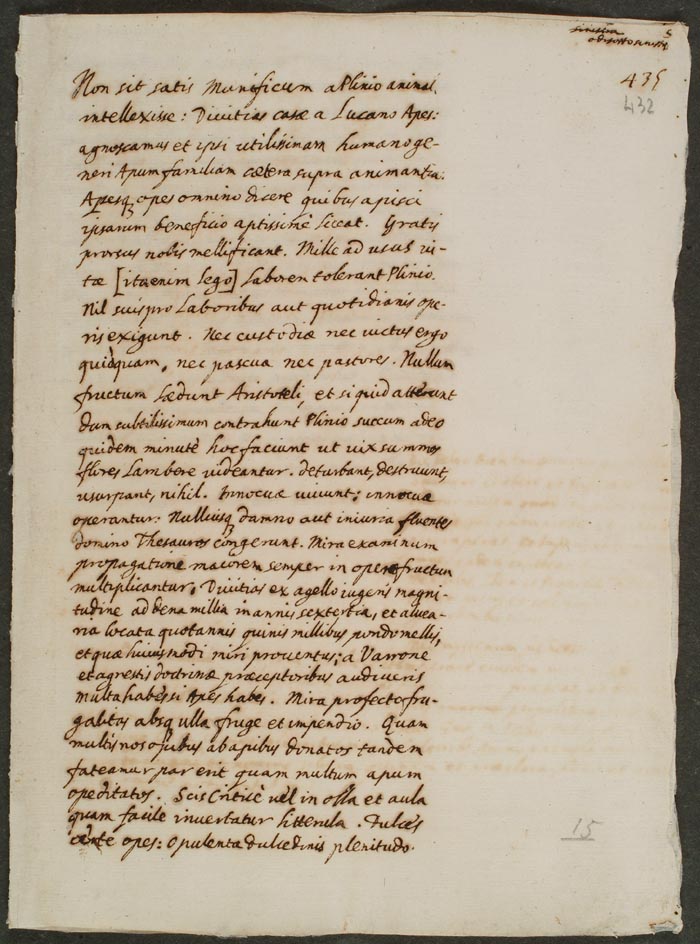 sinistra 5
o di sotto
435
432
Non sit satis Munificum a Plinio animal
intellexisse: Divitias casæ a Lucano Apes:
agnoscamus et ipsi utilissimam humano ge-
neri Apum familiam cætera supra animantia.
Apesq opes omnino dicere quibus apisci
ipsarum beneficio aptissimè liceat. Gratis
prorsus nobis mellificant. Mille ad usus vi-
tæ [ita enim lego] Laborem tolerant Plinio.
Nil suis pro Laboribus aut quotidianis ope-
ris exigunt. Nec custodiæ nec victus ergo
quidquam, nec pascua nec pastores. Nullum
fructum Lædunt Aristoteli, et si quid atterunt
dum subtilissimum contrahunt Plinio succum adeo
quidem minutè hoc faciunt ut vix summos
flores Lambere videantur. deturbant, destruunt,
usurpant, nihil. Innocuæ vivunt; innocuæ
operantur: Nulliusq damno aut iniuria fluentes
domino Thesauros congerunt. Mira examinum
propagatione maiorem semper in opere fructum
multiplicantur. Divitias ex agello iugeris magni-
tudine ad dena millia in annis sextertia, et alvea-
ria locata quotannis quinis millibus pondo mellis,
et quæ huiusmodi miri proventus; a Varrone
et agrestis doctrinæ præceptoribus audiveris
multa habes si Apes habes. Mira profecto fru-
galitas absq ulla fruge et impendio. Quam
multis nos opibus ab apibus donatos tandem
fateamur par erit quam multum apum
opeditatos. Scis Criticè vel in olla et aula
quam facile invertatur litterula. Dulces
opes: opulenta dulcedinis plenitudo.
15